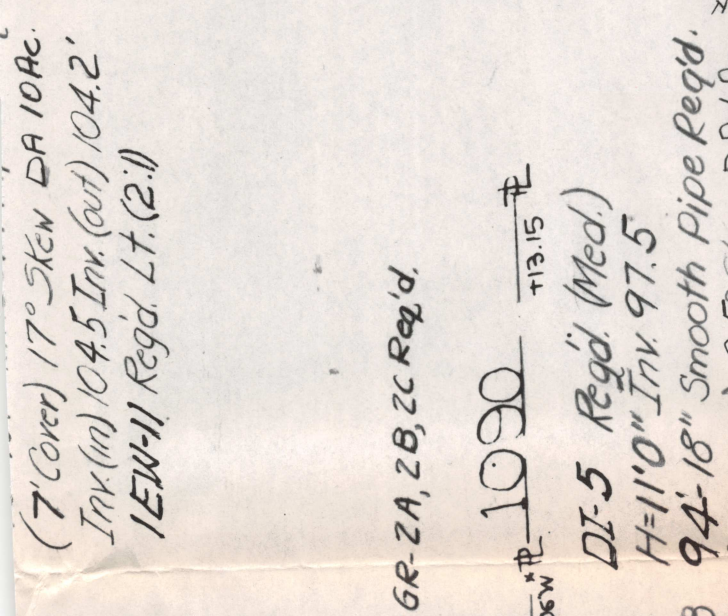 (7' Cover) 17° Skew DA 10 Ac.
Inv.(in) 104.5 Inv.(out) 104.2'
1EW-11 Req'd. Lt.(2:1)
GR-2A, 2B, 2C Req'd.
1090
+13.15
DI-5 Req'd. (Med.)
H=11'0" Inv. 97.5
94'-18" Smooth Pipe Req'd.